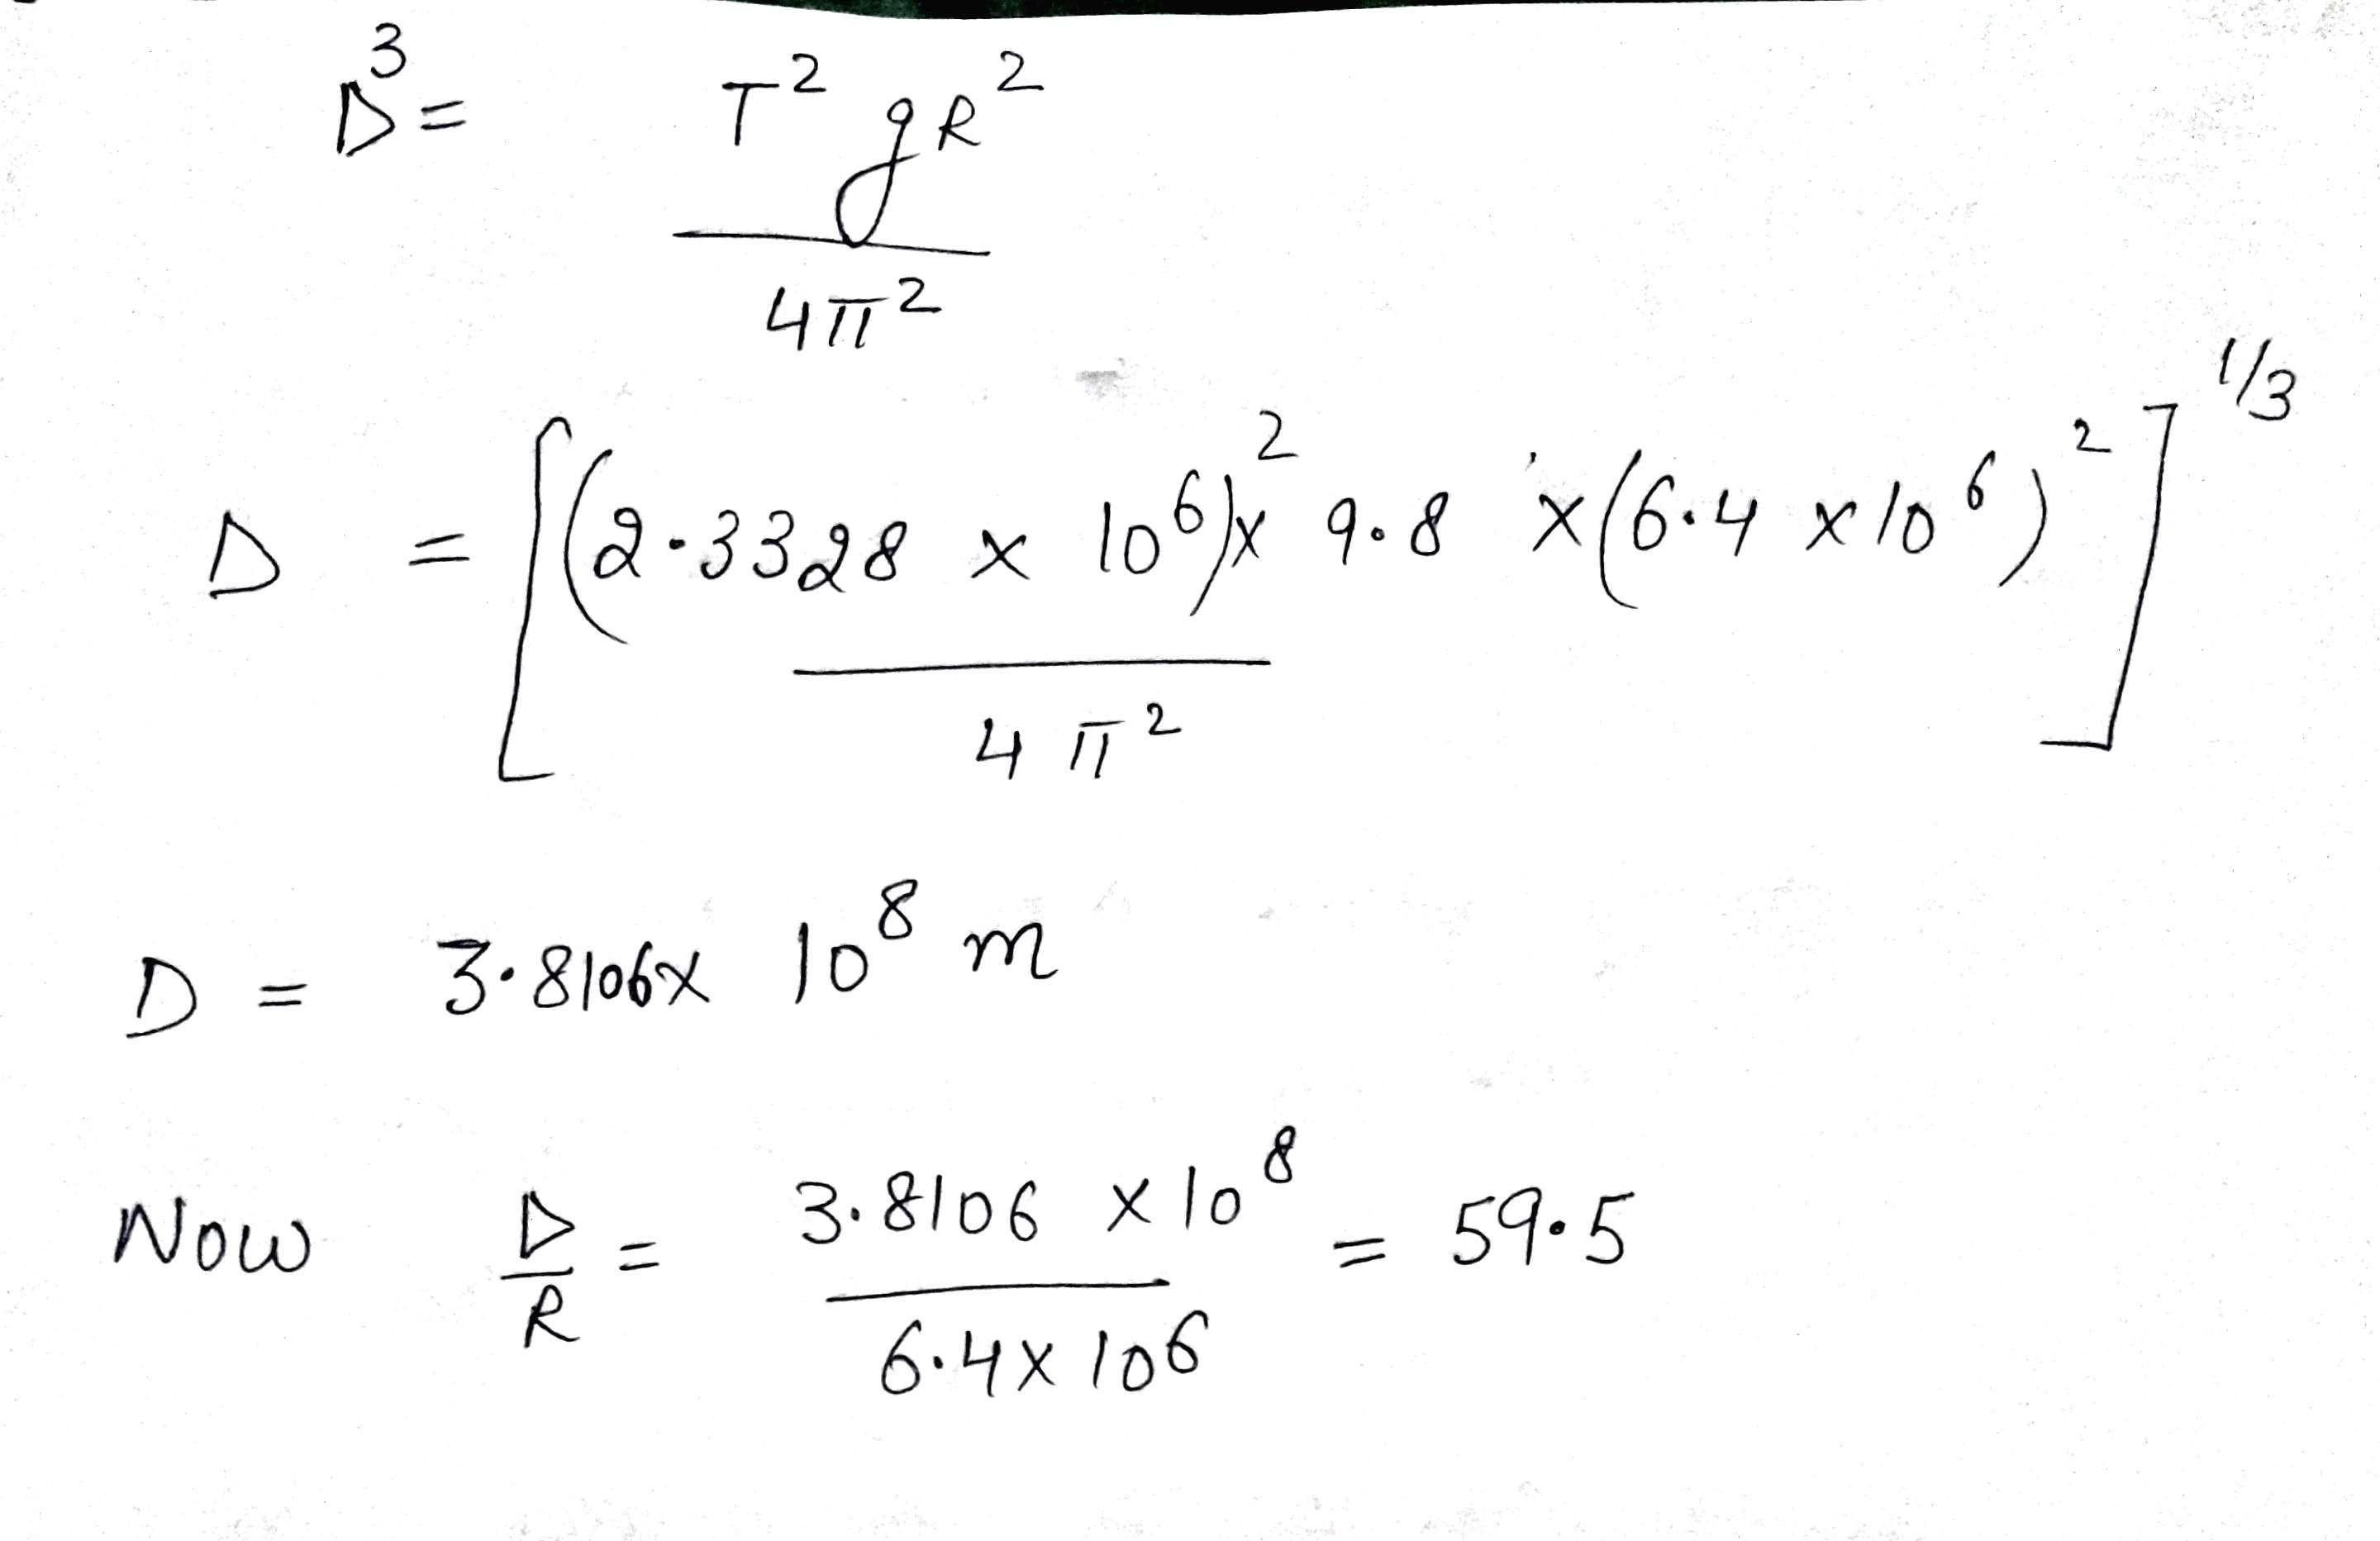 D³ = T² g R² / 4π²
D = [(2.3328 × 10⁶)² × 9.8 × (6.4 × 10⁶)² / 4π²]^1/3
D = 3.8106 × 10⁸ m
Now D/R = 3.8106 × 10⁸ / 6.4 × 10⁶ = 59.5